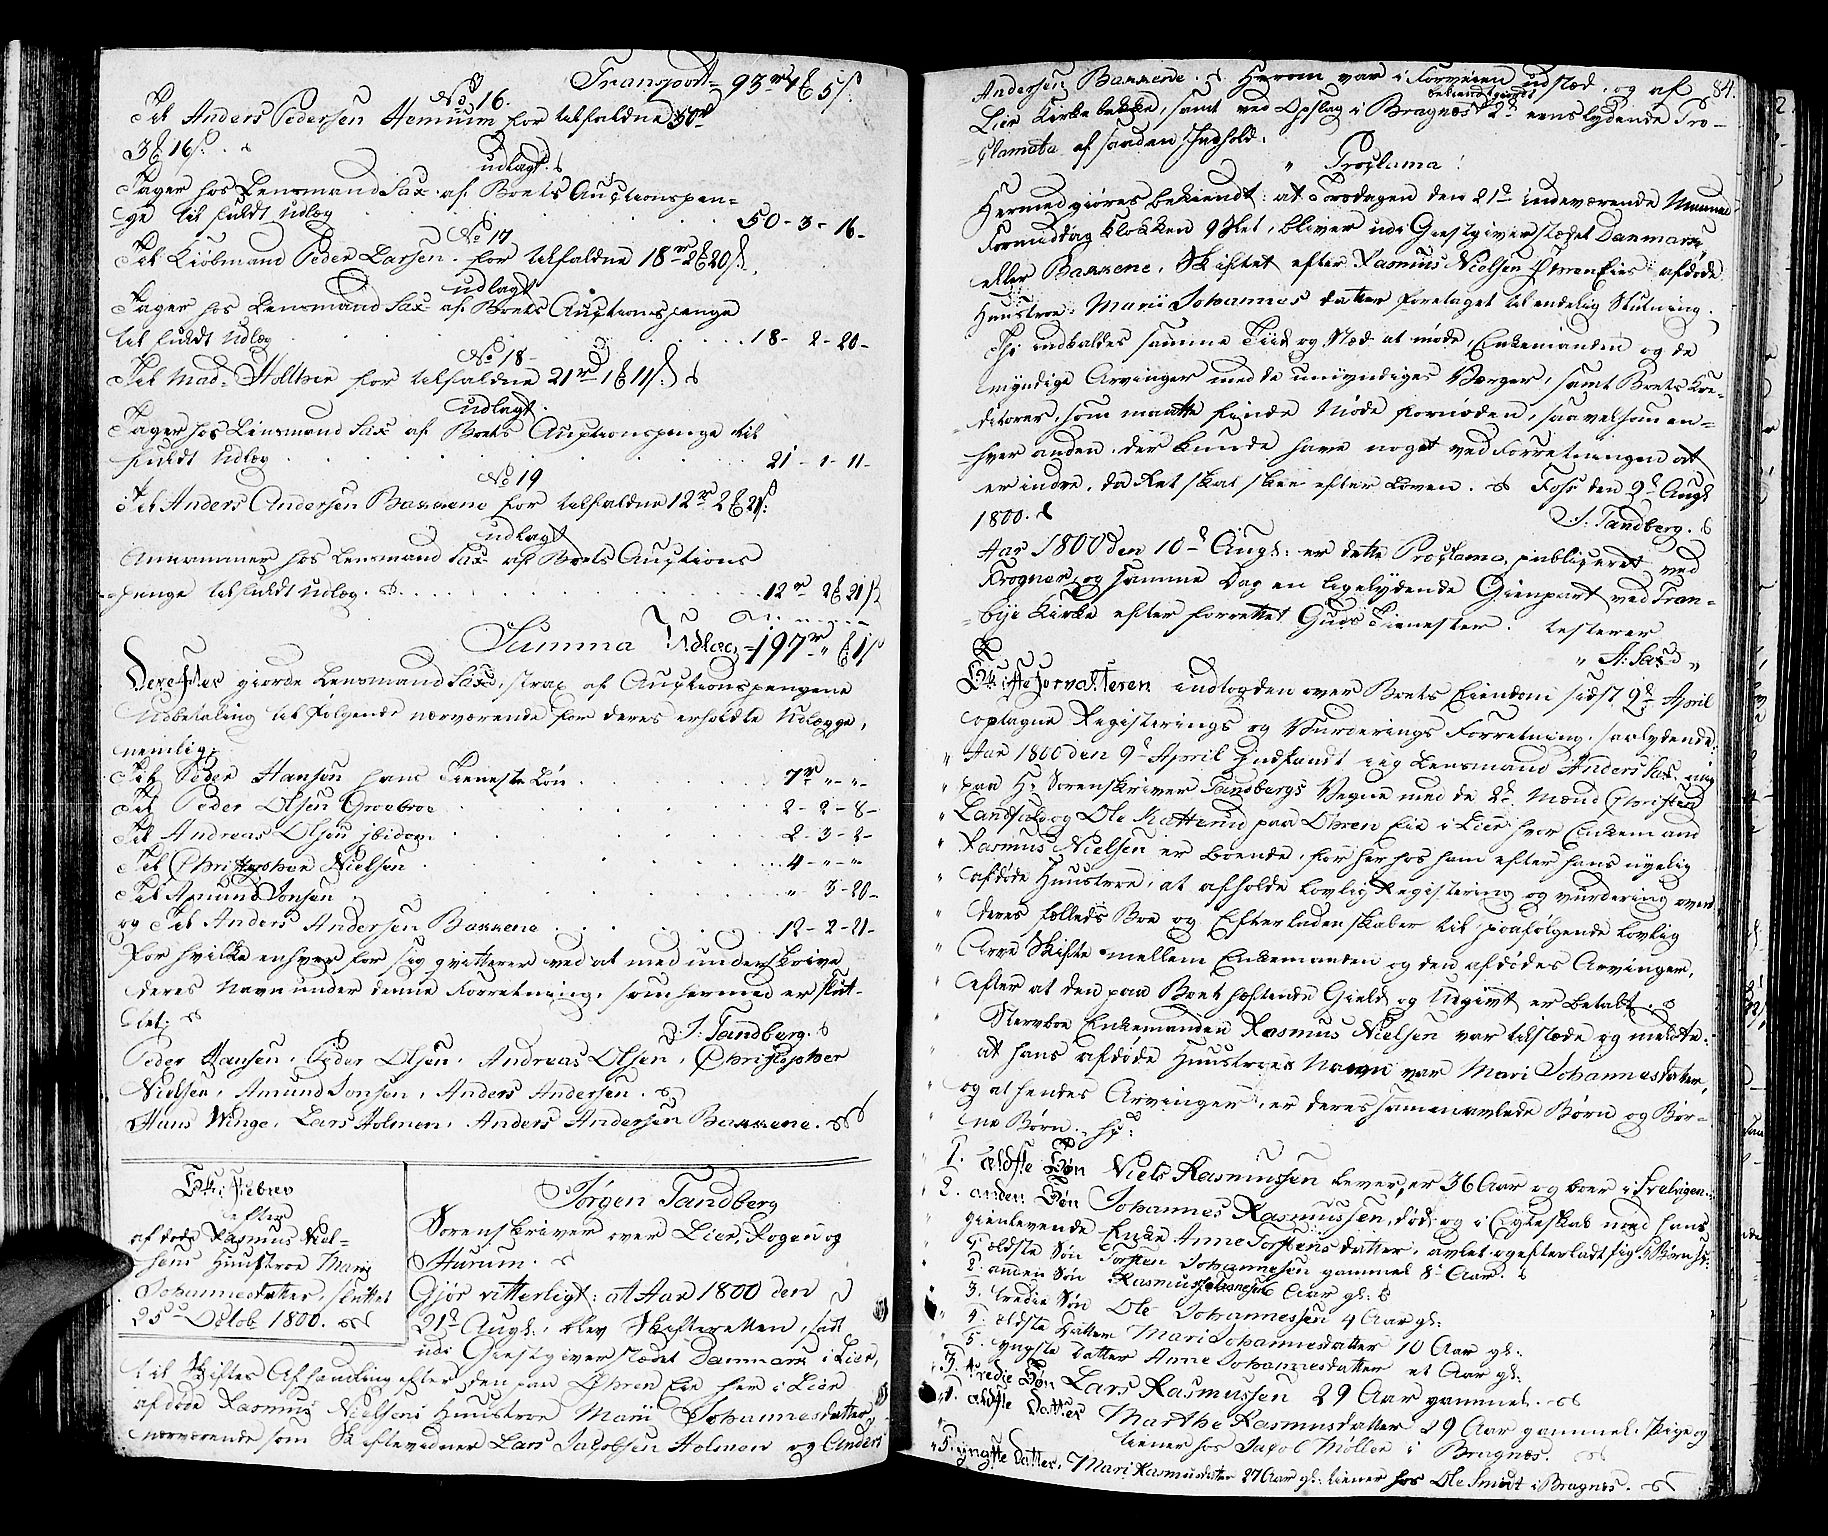 Transport 93 rd 4 5 s.
No 16.
Til Anders Pedersen Hemium for tilfaldne 50 rd
3 16 s.
udlagt.
Tager hos Lensmand Sax af Boets Auctionspen-
ge til fuldt Udlæg 50 - 3 - 16 -
No 17
Til Kiøbmand Peder Larsen for tilfaldne 18 rd 2 20 s.
udlagt
Tager hos Lensmand Sax af Boets Auctionspenge
til fuldt Udlæg 18 - 2 - 20 -
No 18 -
Til Mad. Holther for tilfaldne 21 rd 1 11 s.
udlagt.
Tager hos Lensmand Sax af Boets Auctionspenge til
fuldt Udlæg 21 - 1 - 11 -
No 19
Til Anders Andersen Baxxene for tilfaldne 12 rd 2 21 s.
udlagt
Annammer hos Lensmand Sax af Boets Auctions
penge til fuldt Udlæg. 12 rd 2 21 s
Summa Udlæg 197 rd " 1 s
Derefter giorde Lensmand Sax, strax af Auctionspengene
Udbetaling til følgende nærværende for deres erholdte Udlægge,
nemlig:
Til Peder Hansen hans Tieneste Løn 7 rd " - "
Til Peder Olsen Groebroe 2 - 2 - 8 -
Til Andreas Olsen ibidem 2 - 3 - 2 -
Til Christopher Nielsen 4 - " - "
Til Amund Jonsen " 3 - 20 -
og Til Anders Andersen Baxxene 12 - 2 - 21 -
For hvilke enhver for sig qvitterer ved at med underskrive
deres Navn under denne Forretning, som hermed er slut-
tet.
J. Tandberg.
Peder Hansen. Peder Olsen. Andreas Olsen. Christopher
Nielsen. Amund Jonsen. Anders Andersen.
Hans Winge. Lars Holmen. Anders Andersen Baxxene.
Skiftebrev
efter
afdøde Rasmus Niel-
sens Huustroe Marie
Johannesdatter, sluttet
25 Octob 1800.
Jørgen Tandberg
Sorenskriver over Lier, Rogen og
Hurum.
Giør vitterligt: at Aar 1800 den
21d Augl., blev Skifteretten, sadt
udi Giestgiverstædet Danmark i Lier,
til Skiftes Afhandling efter den paa Øhren Eie her i Lier
afdøde Rasmus Nielsens Huustroe Marii Johannesdatter,
nærværende som Skiftevidner Lars Jacobsen Holmen og Anders
84.
Andersen Baxxene. Herom var i Forveien udstæd, og af
bekiendtgiort
Lier Kirkebakke, samt ved Opslag i Bragnæs 2de eenslydende Pro-
clamata af saadan Indhold.
" Proclama!
Hermed giøres bekiendt: at Torsdagen den 21d indeværende Maaned
Formiddag Klokken 9 Slet, bliver udi Giestgiverstædet Danmark
eller Baxxene, Skiftet efter Rasmus Nielsen Øhren Eies afdøde
Huustroe Marii Johannes datter foretaget til endelig Slutning.
Thi indkaldes samme Tiid og Stæd at møde, Enkemanden og de
myndige Arvinger med de umyndiges Værger, samt Boets Kre-
ditorer, som maatte finde Møde fornøden, saavelsom en-
hver anden, der kunde have noget ved Forretningen at
erindre, da Ret skal skee efter Loven. Foss den 9d Augl
1800.
J. Tandberg.
Aar 1800 den 10d Augl. er dette Proclama publiceret ved
Frogner, og samme Dag en ligelydende Gienpart ved Tran-
bye Kirke efter forrettet Guds Tieneste. testerer
" A: Sax "
Skifteforvalteren indlogden over Boets Eiendom sidst 9d April
optagne Registerings og Vurderings Forretning, saalydende:
" Aar 1800 den 9d April Indfandt jeg Lensmand Anders Sax mig
" paa Hr Sorenskriver Tandbergs Vegne med de 2de Mænd Christen
" Landfald og Ole Katterud paa Øhren Eie i Lier hvor Enkemand
" Rasmus Nielsen er boende, for her hos ham efter hans nyelig
" afdøde Huustroe, at afholde lovlig Registering og vurdering over
" deres fælleds Boe og Efterladenskaber til paafølgende lovlig
" Arve Skifte mellem Enkemanden og den afdødes Arvinger,
" efter at den paa Boet hæftende Gield og Udgivt er betalt.
" Stervboe Enkemanden Rasmus Nielsen var tilstæde og meldte:
" at hans afdøde Huustroes Navn var Mari Johannesdatter,
" og at hendes Arvinger, er deres sammenavlede Børn og Bør-
" ne Børn,
" 1. ældste Søn Niels Rasmussen lever, er 36 Aar og boer i
" 2. anden Søn Johannes Rasmussen, død, og i Egteskab med hans
gienlevende Enke Anne Torstensdatter, avlet og efterladt sig 5 Børn
1. ældste Søn Torsten Johannesen gammel 8 Aar.
2. anden Søn Rasmus Johannesen 6 Aar gl.
3. tredie Søn Ole Johannessen 4 Aar gl:
4. ældste Datter Mari Johannesdatter 10 Aar gl:
5. yngste Datter Anne Johannesdatter et Aar gl:
" 3. tredie Søn Lars Rasmussen 29 Aar gammel.
" 4. ældste Datter Marthe Rasmusdatter 29 Aar gammel Pige og
tiener hos Jacob Møller i Bragnes.
" 5. yngste Datter, Mari Rasmusdatter 27 Aar gl: tiener hos Ole Smidt i Bragnes.